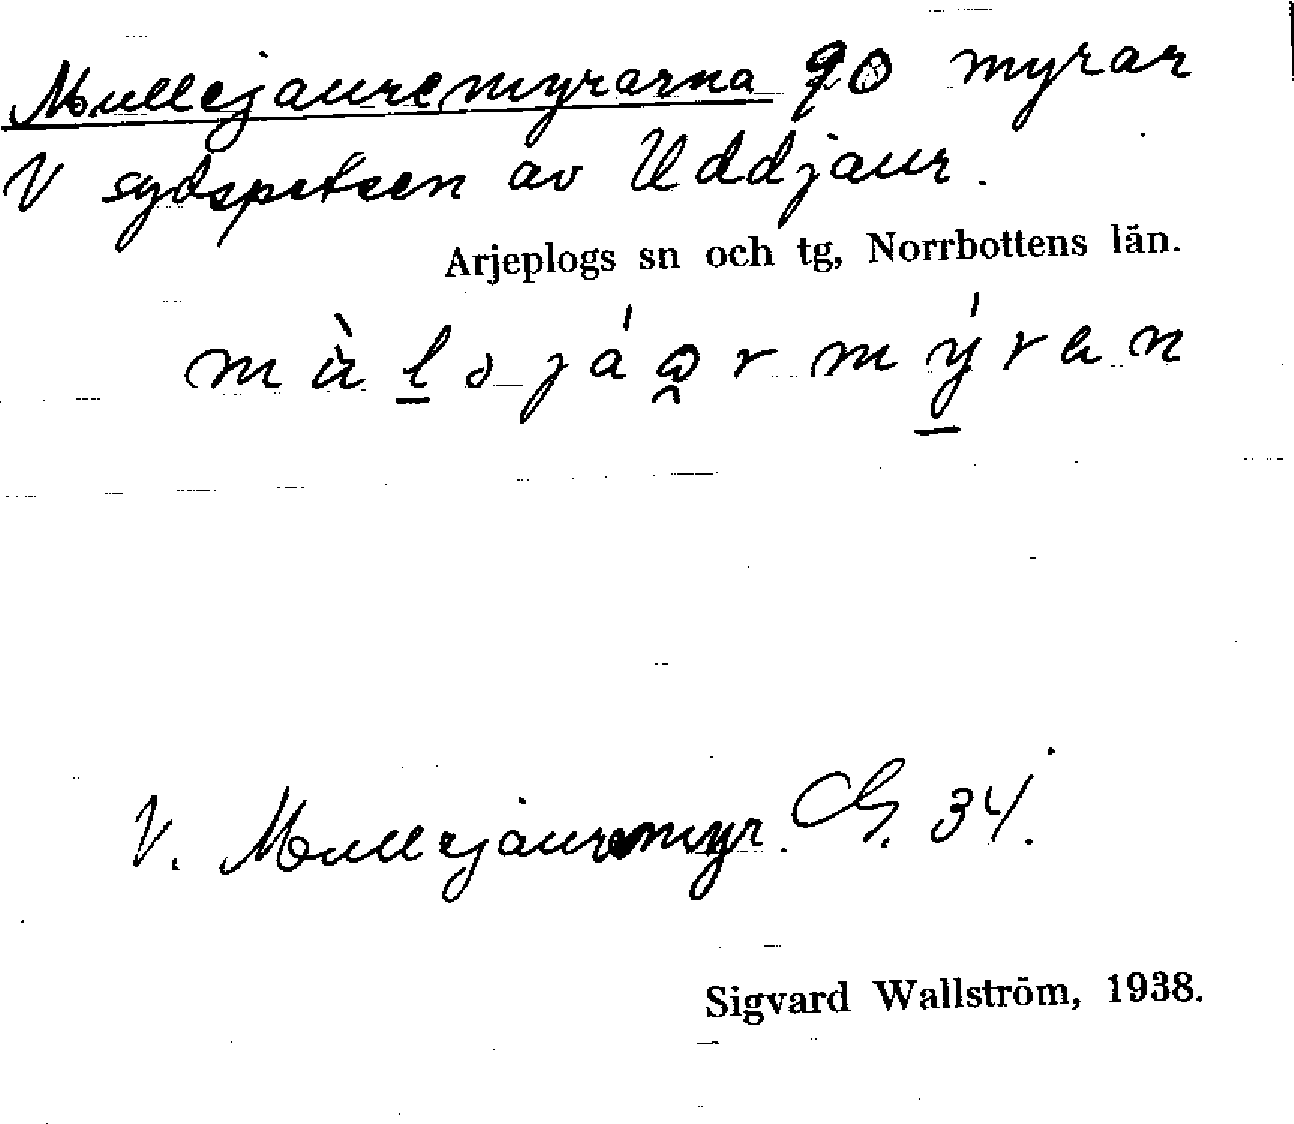 Mullejauremyrarna myrar
V sydspetsen av Uddjaur.
Arjeplogs sn och tg, Norrbottens län.
V. Mullejauremyr. G. 34.
Sigvard Wallström, 1938.